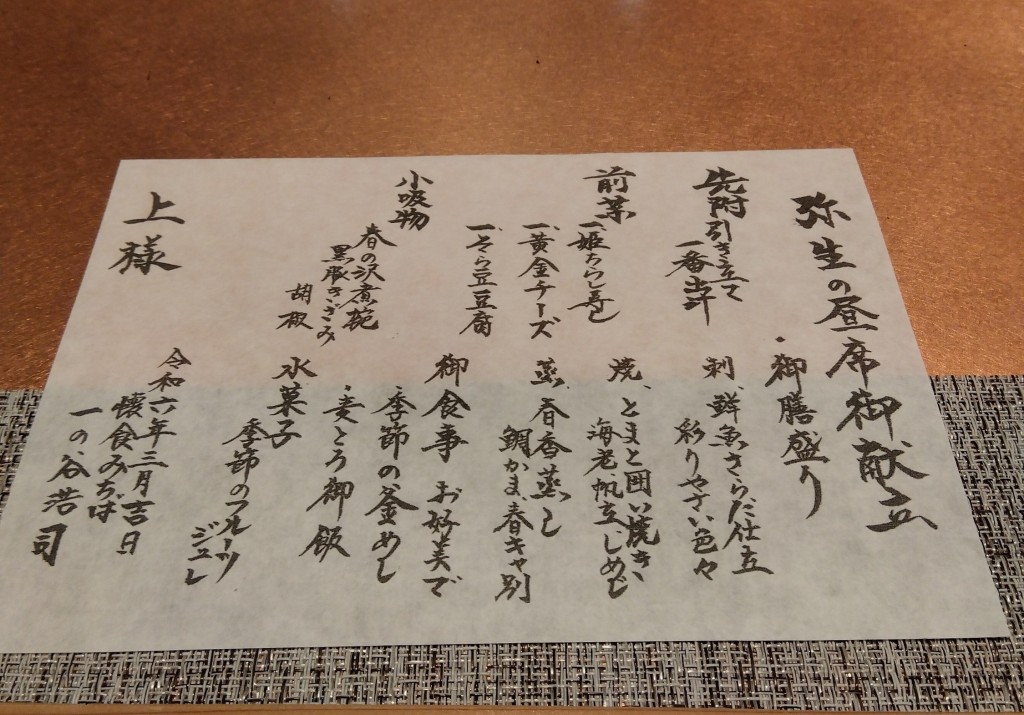 弥生の昼席御献立
先附
引き立て
一番出汁
前菜
一、姫ちらし寿し
一、黄金チーズ
一、そら豆豆腐
小吸物
春の沢煮椀
黒豚きざみ
胡椒
上様
・御膳盛り
刺、鮮魚さらだ仕立
彩りやさい色々
焼、とまと囲い焼き
海老帆立しめじ
蒸、春香蒸し
鯛かま、春キャ別
御食事 お好美で
季節の釜めし
・麦とろ御飯
水菓子
季節のフルーツ
ジュレ
令和六年三月吉日
懐食みちば
一の谷浩司